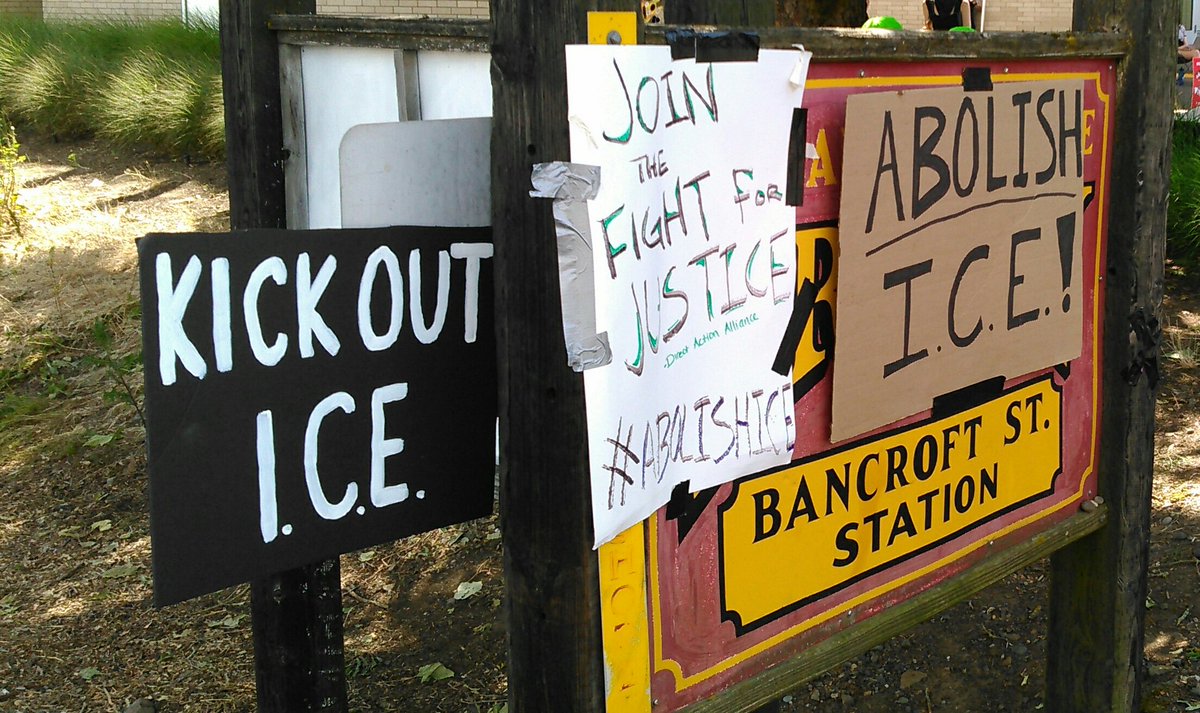 KICK OUT
I.C.E.
JOIN
THE
FIGHT FOR
JUSTICE
-Direct Action Alliance
#ABOLISHICE
ABOLISH
I.C.E.!
BANCROFT ST.
STATION